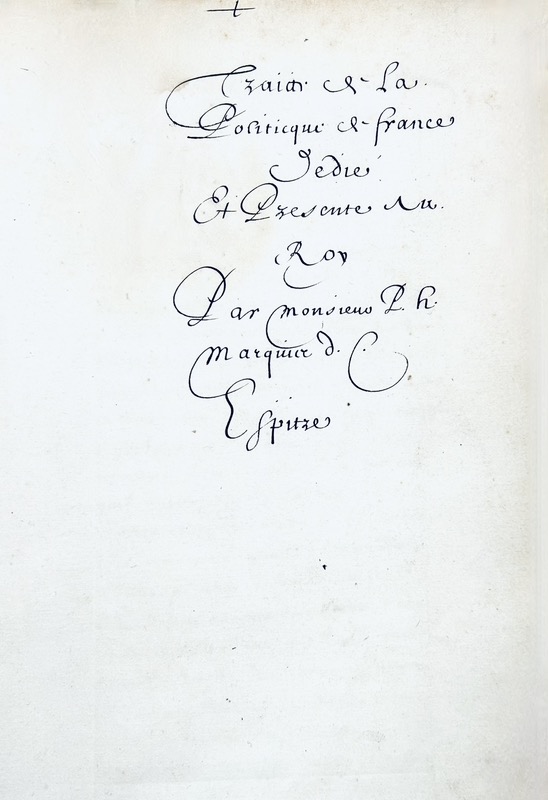 Traicté de La
Politicque de france
Dedié
Et Presente Au
Roy
Par Monsieur P. h.
Marquis d. C
Espitre